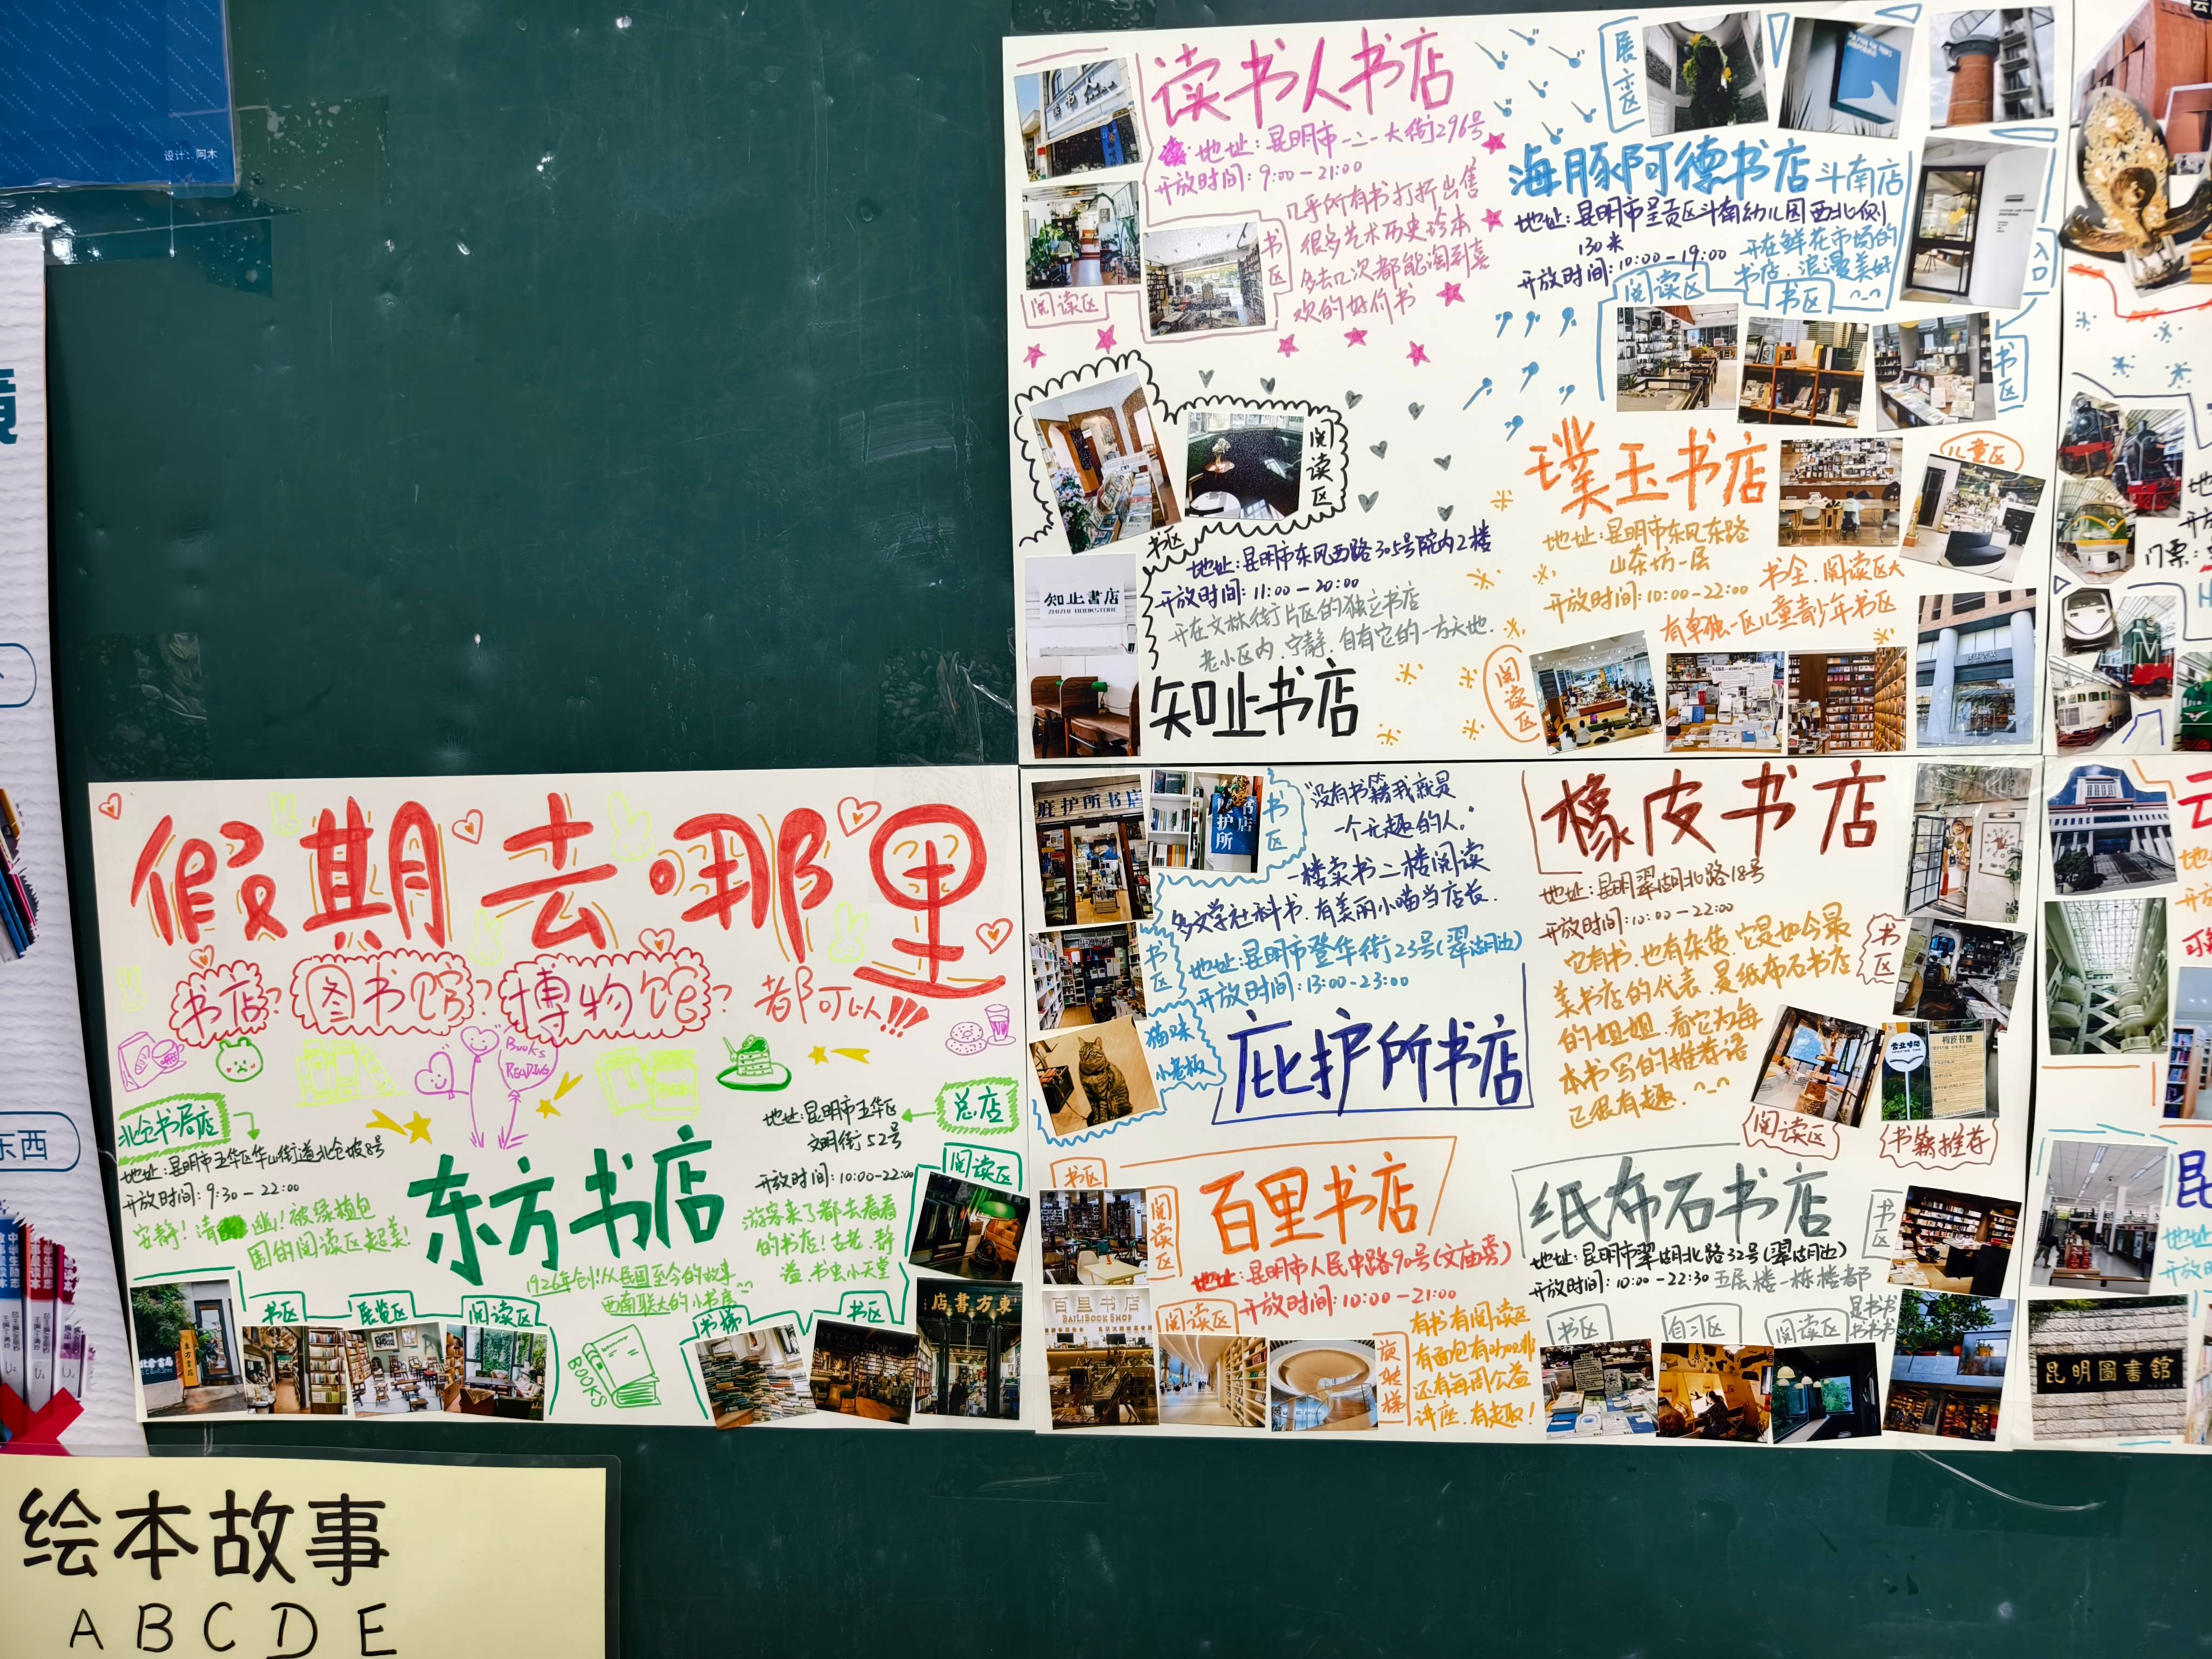 设计：阿木
境
东西
绘本故事
A B C D E
假期去哪里
书店？图书馆？博物馆？都可以!!!
Books
READING
北仓书局店
地址：昆明市五华区华山街道北仓坡8号
开放时间：9:30—22:00
安静！清幽！被绿植包
围的阅读区超美！
东方书店
总店
地址：昆明市五华区
文明街52号
开放时间：10:00-22:00
游客来了都去看看
的书店！古老、静
谧、书虫小天堂
1926年创!从民国至今的故事
西南联大的小书店~~
书区
展览区
阅读区
BOOKS
书梯
书区
阅读区
店書方東
读书人书店
地址：昆明市一二一大街296号
开放时间：9:00—21:00
几乎所有书打折出售
很多艺术历史珍本
多去几次都能淘到喜
欢的好价书
书区
阅读区
展示区
海豚阿德书店 斗南店
地址：昆明市呈贡区斗南幼儿园西北侧
130米
开放时间：10:00—19:00
开在鲜花市场的
书店.浪漫美好
^_^
阅读区
书区
入口
书区
阅读区
书区
地址：昆明市东风西路305号院内2楼
开放时间：11:00—20:00
开在文林街片区的独立书店
老小区内.宁静.自有它的一方天地.
知止书店
知止書店
ZHIZHI BOOKSTORE
璞玉书店
地址：昆明市东风东路
山茶坊一层
开放时间：10:00—22:00
书全.阅读区大
有单独一区儿童青少年书区
儿童区
阅读区
庇护所书店
书区
“没有书籍我就是
一个无趣的人。”
一楼卖书二楼阅读
多文学社科书.有美丽小喵当店长.
地址：昆明市登华街23号(翠湖边)
开放时间：13:00-23:00
书区
猫咪
小老板
庇护所书店
橡皮书店
地址：昆明翠湖北路18号
开放时间：10:00—22:00
它有书.也有杂货.它是如今最
美书店的代表.是纸布石书店
的姐姐.看它为每
本书写的推荐语
已很有趣.^_^
书区
阅读区
书籍推荐
营业时间
百里书店
地址：昆明市人民中路90号(文庙旁)
开放时间：10:00—21:00
有书有阅读区
有面包有咖啡
还有每周公益
讲座.有趣！
书区
阅读区
阅读区
旋转梯
百里书店
BAILIBOOK SHOP
纸布石书店
地址：昆明市翠湖北路32号(翠湖边)
开放时间：10:00—22:30
五层楼一栋楼都
是书书书书书
书区
书区
自习区
阅读区
门票：
昆明圖書館